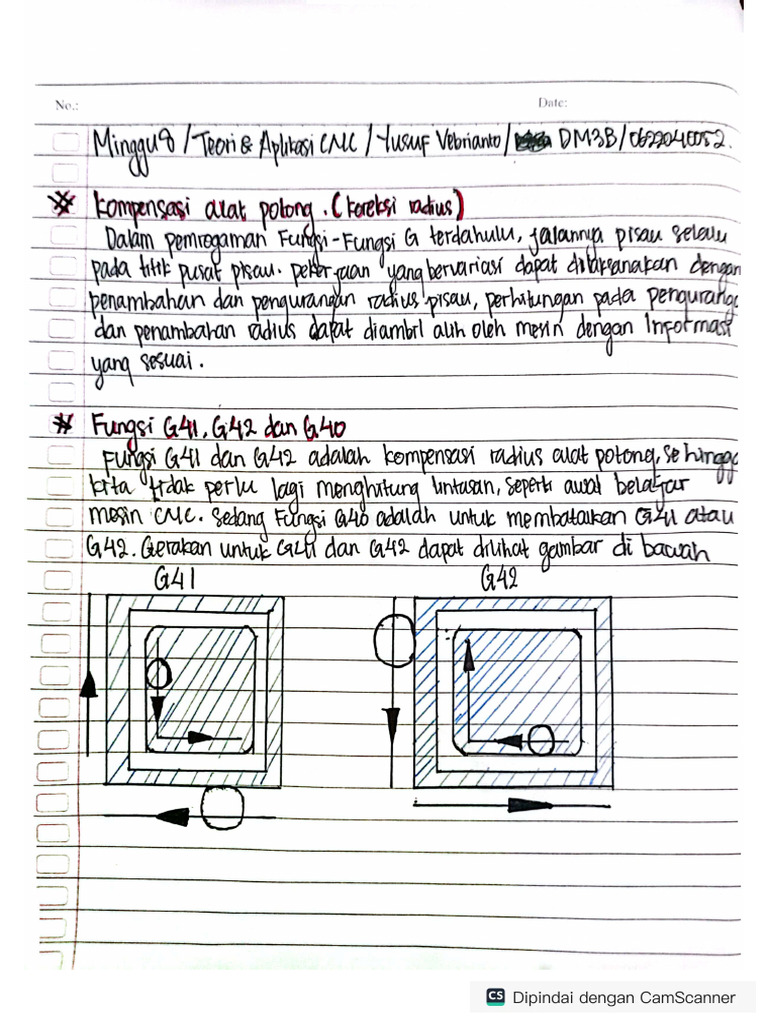 No.:
Date:
Minggu 8 / Teori & Aplikasi CNC / Yusuf Vebrianto / DM3B / 0622040052.
* Kompensasi alat potong. (Koreksi radius)
Dalam pemrogaman Fungsi-Fungsi G terdahulu, jalannya pisau selalu
pada titik pusat pisau. pekerjaan yang bervariasi dapat dilaksanakan dengan
penambahan dan pengurangan radius pisau, perhitungan pada pengurang
dan penambahan radius dapat diambil alih oleh mesin dengan Informasi
yang sesuai.
* Fungsi G41, G42 dan G40
Fungsi G41 dan G42 adalah kompensasi radius alat potong, sehingga
kita tidak perlu lagi menghitung lintasan, seperti awal belajar
mesin CNC. Sedang Fungsi G40 adalah untuk membatalkan G41 atau
G42. Gerakan untuk G41 dan G42 dapat dilihat gambar di bawah
G41
G42
CS Dipindai dengan CamScanner